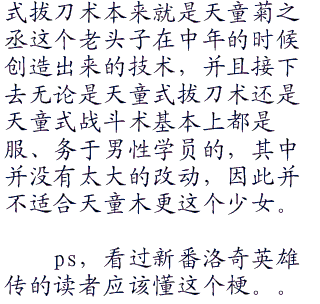 式拔刀术本来就是天童菊之
丞这个老头子在中年的时候
创造出来的技术，并且接下
去无论是天童式拔刀术还是
天童式战斗术基本上都是
服、务于男性学员的，其中
并没有太大的改动，因此并
不适合天童木更这个少女。
ps，看过新番洛奇英雄
传的读者应该懂这个梗。。